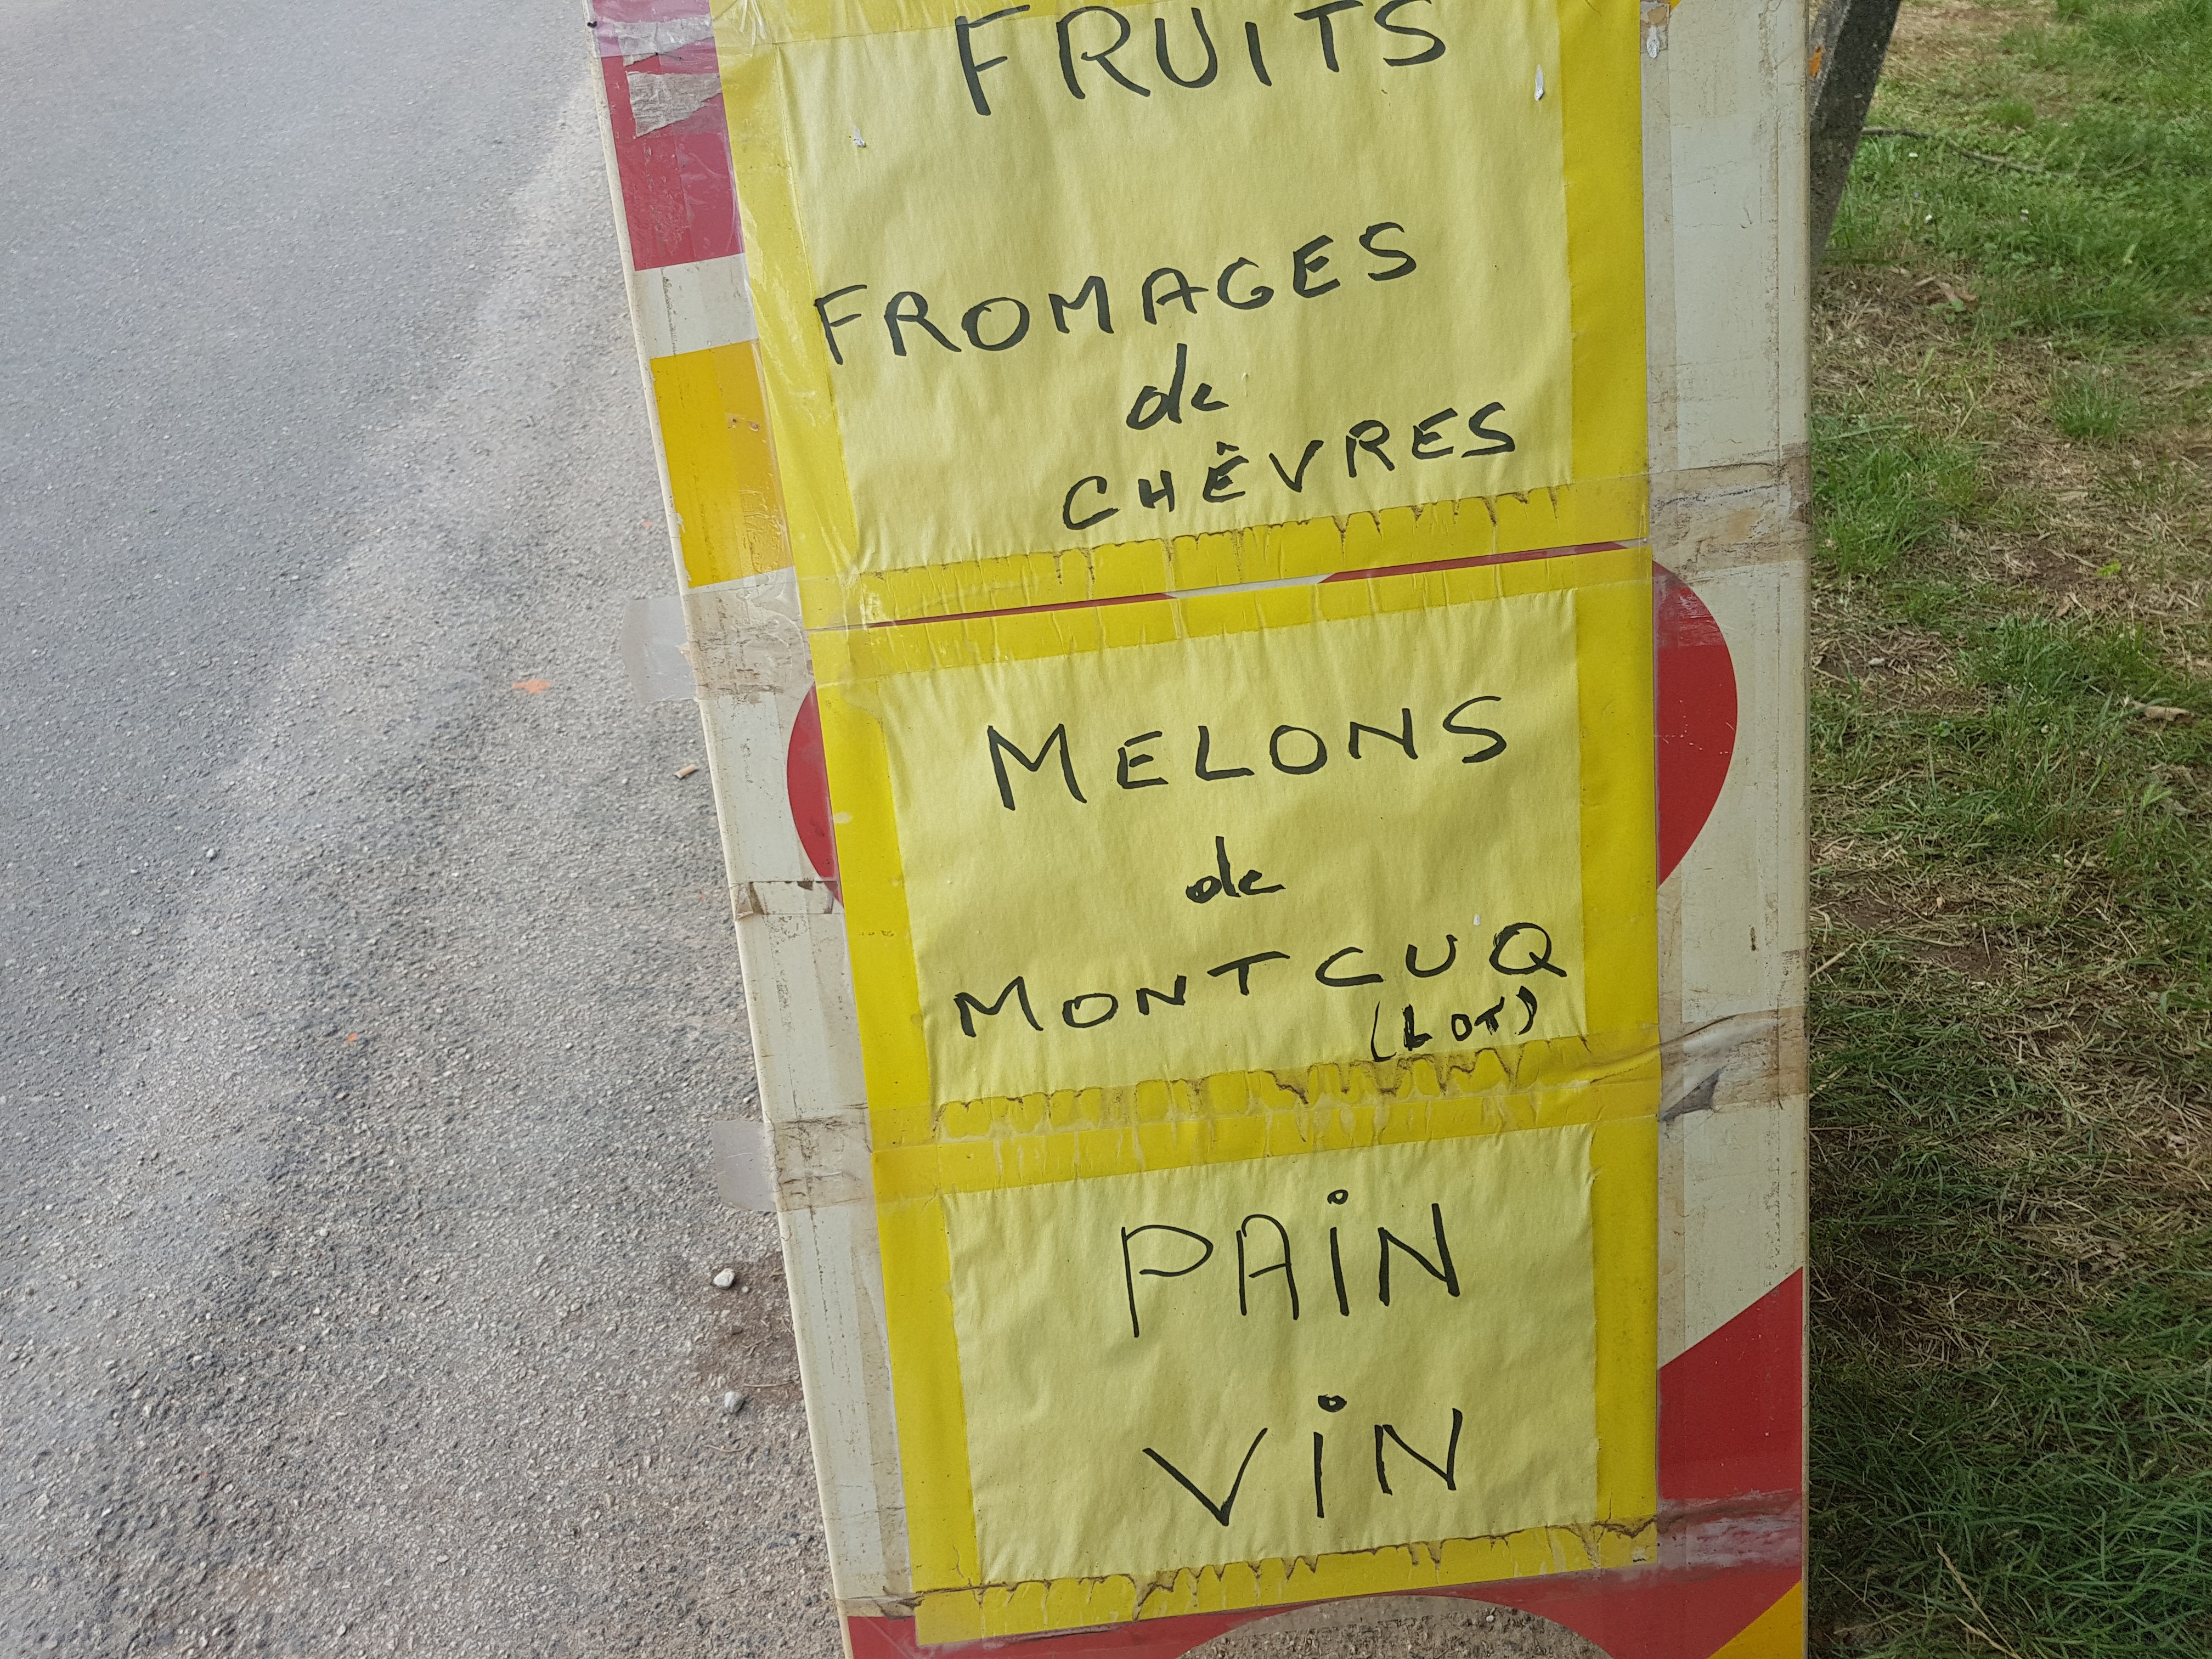 FRUITS
FROMAGES
de
CHÊVRES
MELONS
de
MONTCUQ
(LOT)
PAiN
ViN